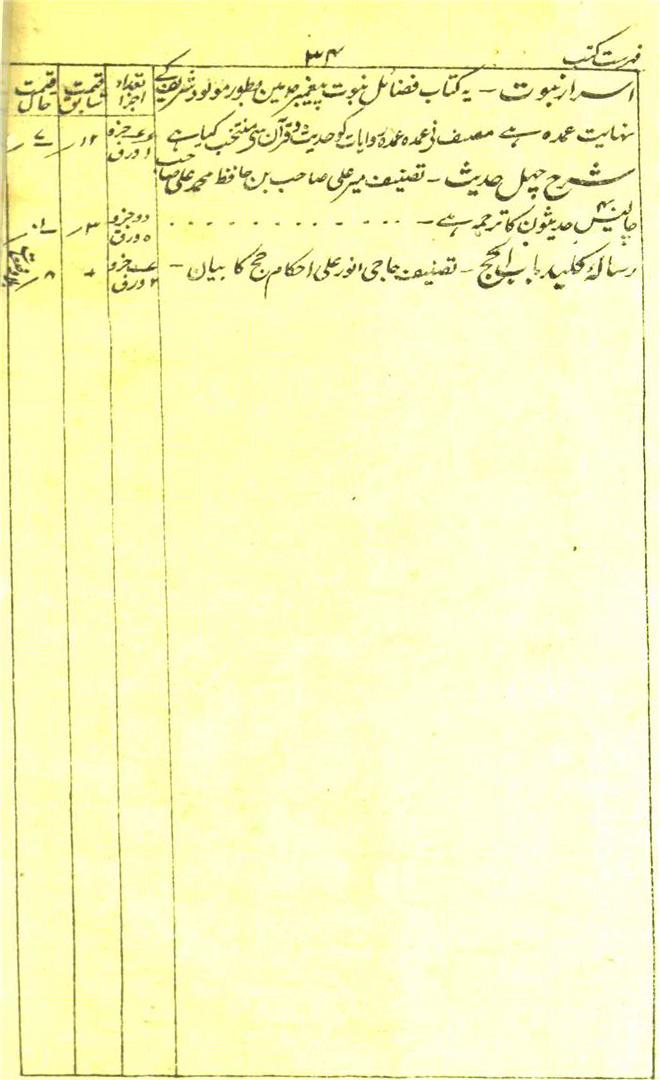 فہرست کتب
۳۴
اسرار نبوت - یہ کتاب فضائل نبوت پیغمبر میں بطور مولود شریف کے تعداد اجزا قیمت سابق قیمت حال
نہایت عمدہ ہے مصنف نی عمدہ عمدہ روایات کو حدیث و قرآن سی منتخب کیا ہے جزو ورق ۱۲؍ ۷؍
شرح چہل حدیث - تصنیف میر علی صاحب بن حافظ محمد علی صاحب
چالیس حدیثون کا ترجمہ ہے - دو جزو ۵ ورق ۳؍
رسالۂ کلید باب الحج - تصنیف حاجی انور علی احکام حج کا بیان - جزو ۲ ورق ۸؍